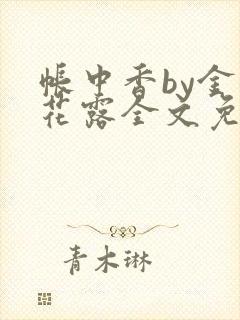 帐中香by金
花露全文免
青木琳